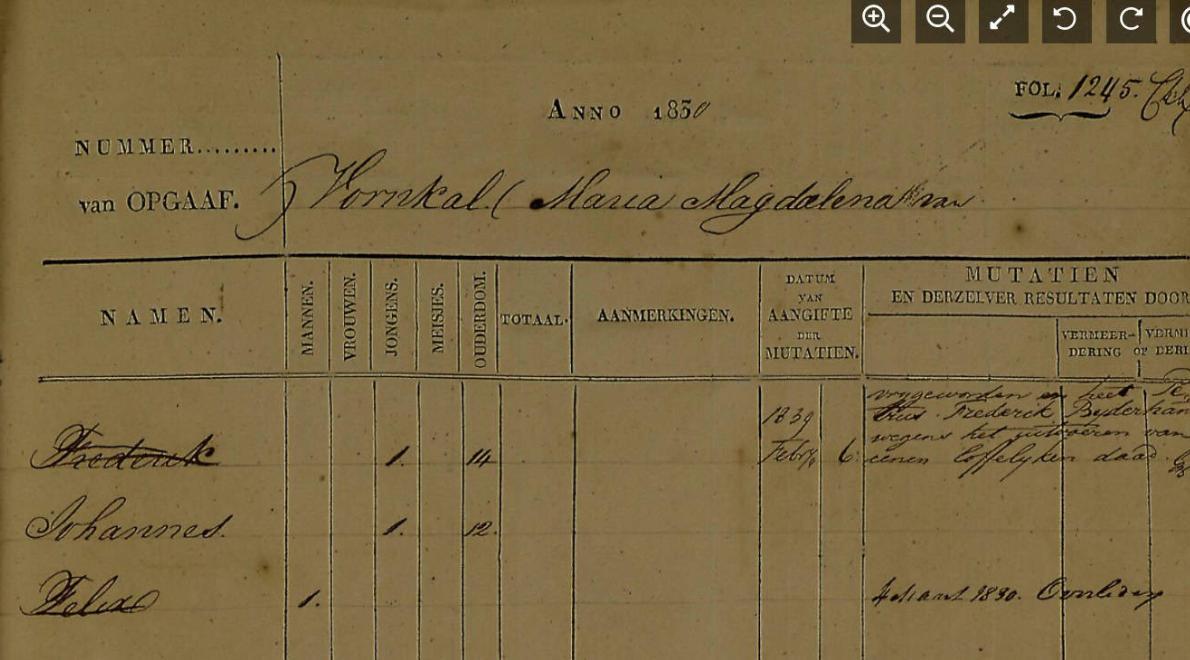 FOL: 1245.
ANNO 1830
NUMMER.........
van OPGAAF.
Vornkal. (Maria Magdalena van
NAMEN.
MANNEN.
VROUWEN.
JONGENS.
MEISJES.
OUDERDOM.
TOTAAL.
AANMERKINGEN.
DATUM
VAN
AANGIFTE
DER
MUTATIEN.
MUTATIEN
EN DERZELVER RESULTATEN DOOR
VERMEER-
DERING OF
vrygeworden en heet
Frederick 1. 14 1839 Febry 6. Frederick Byderhan
wegens het uitvoeren van
eenen loffelyken daad.
Johannes. 1. 12.
Felix 1. 4 Maart 1830. Overleden